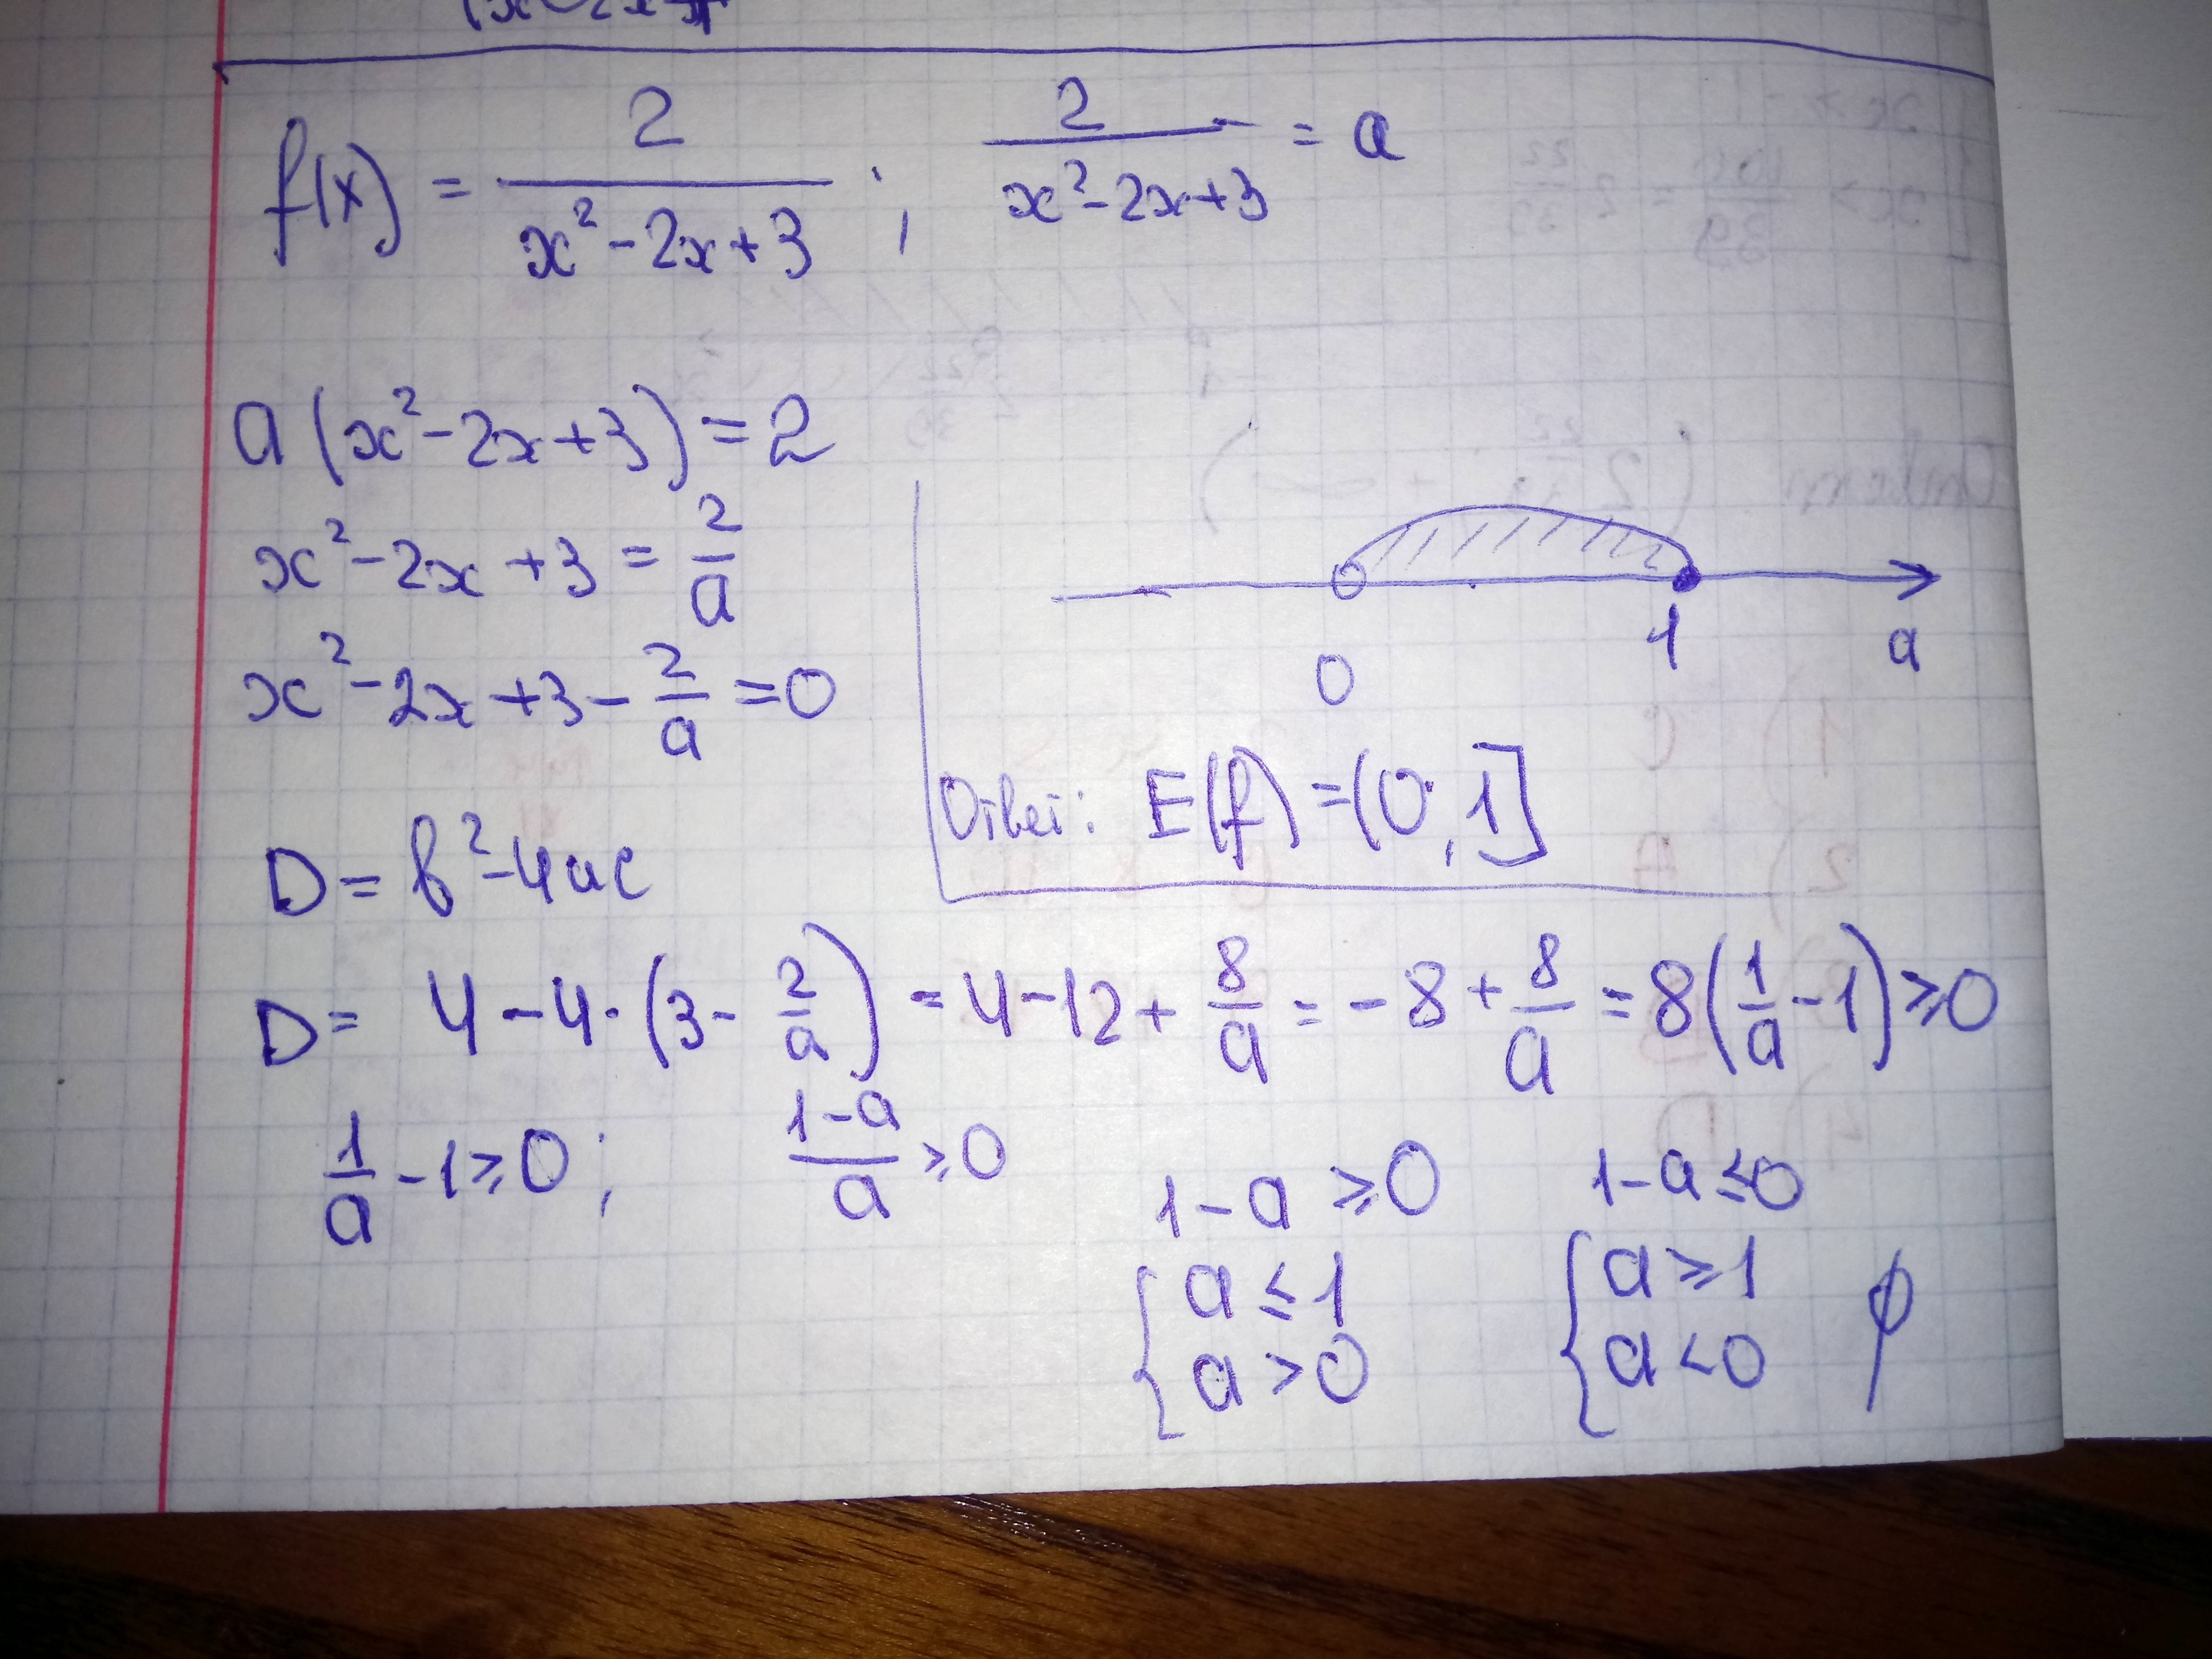 f(x) = 2/(x²-2x+3) ; 2/(x²-2x+3) = a
a(x²-2x+3)=2
x²-2x+3 = 2/a
x²-2x+3-2/a=0
0 1 a
E(f)=(0;1]
D=b²-4ac
D= 4-4·(3-2/a) = 4-12+8/a = -8+8/a = 8(1/a-1)≥0
1/a-1≥0; (1-a)/a≥0 1-a≥0 1-a≤0
{a≤1 {a≥1 ∅
a>0 a<0